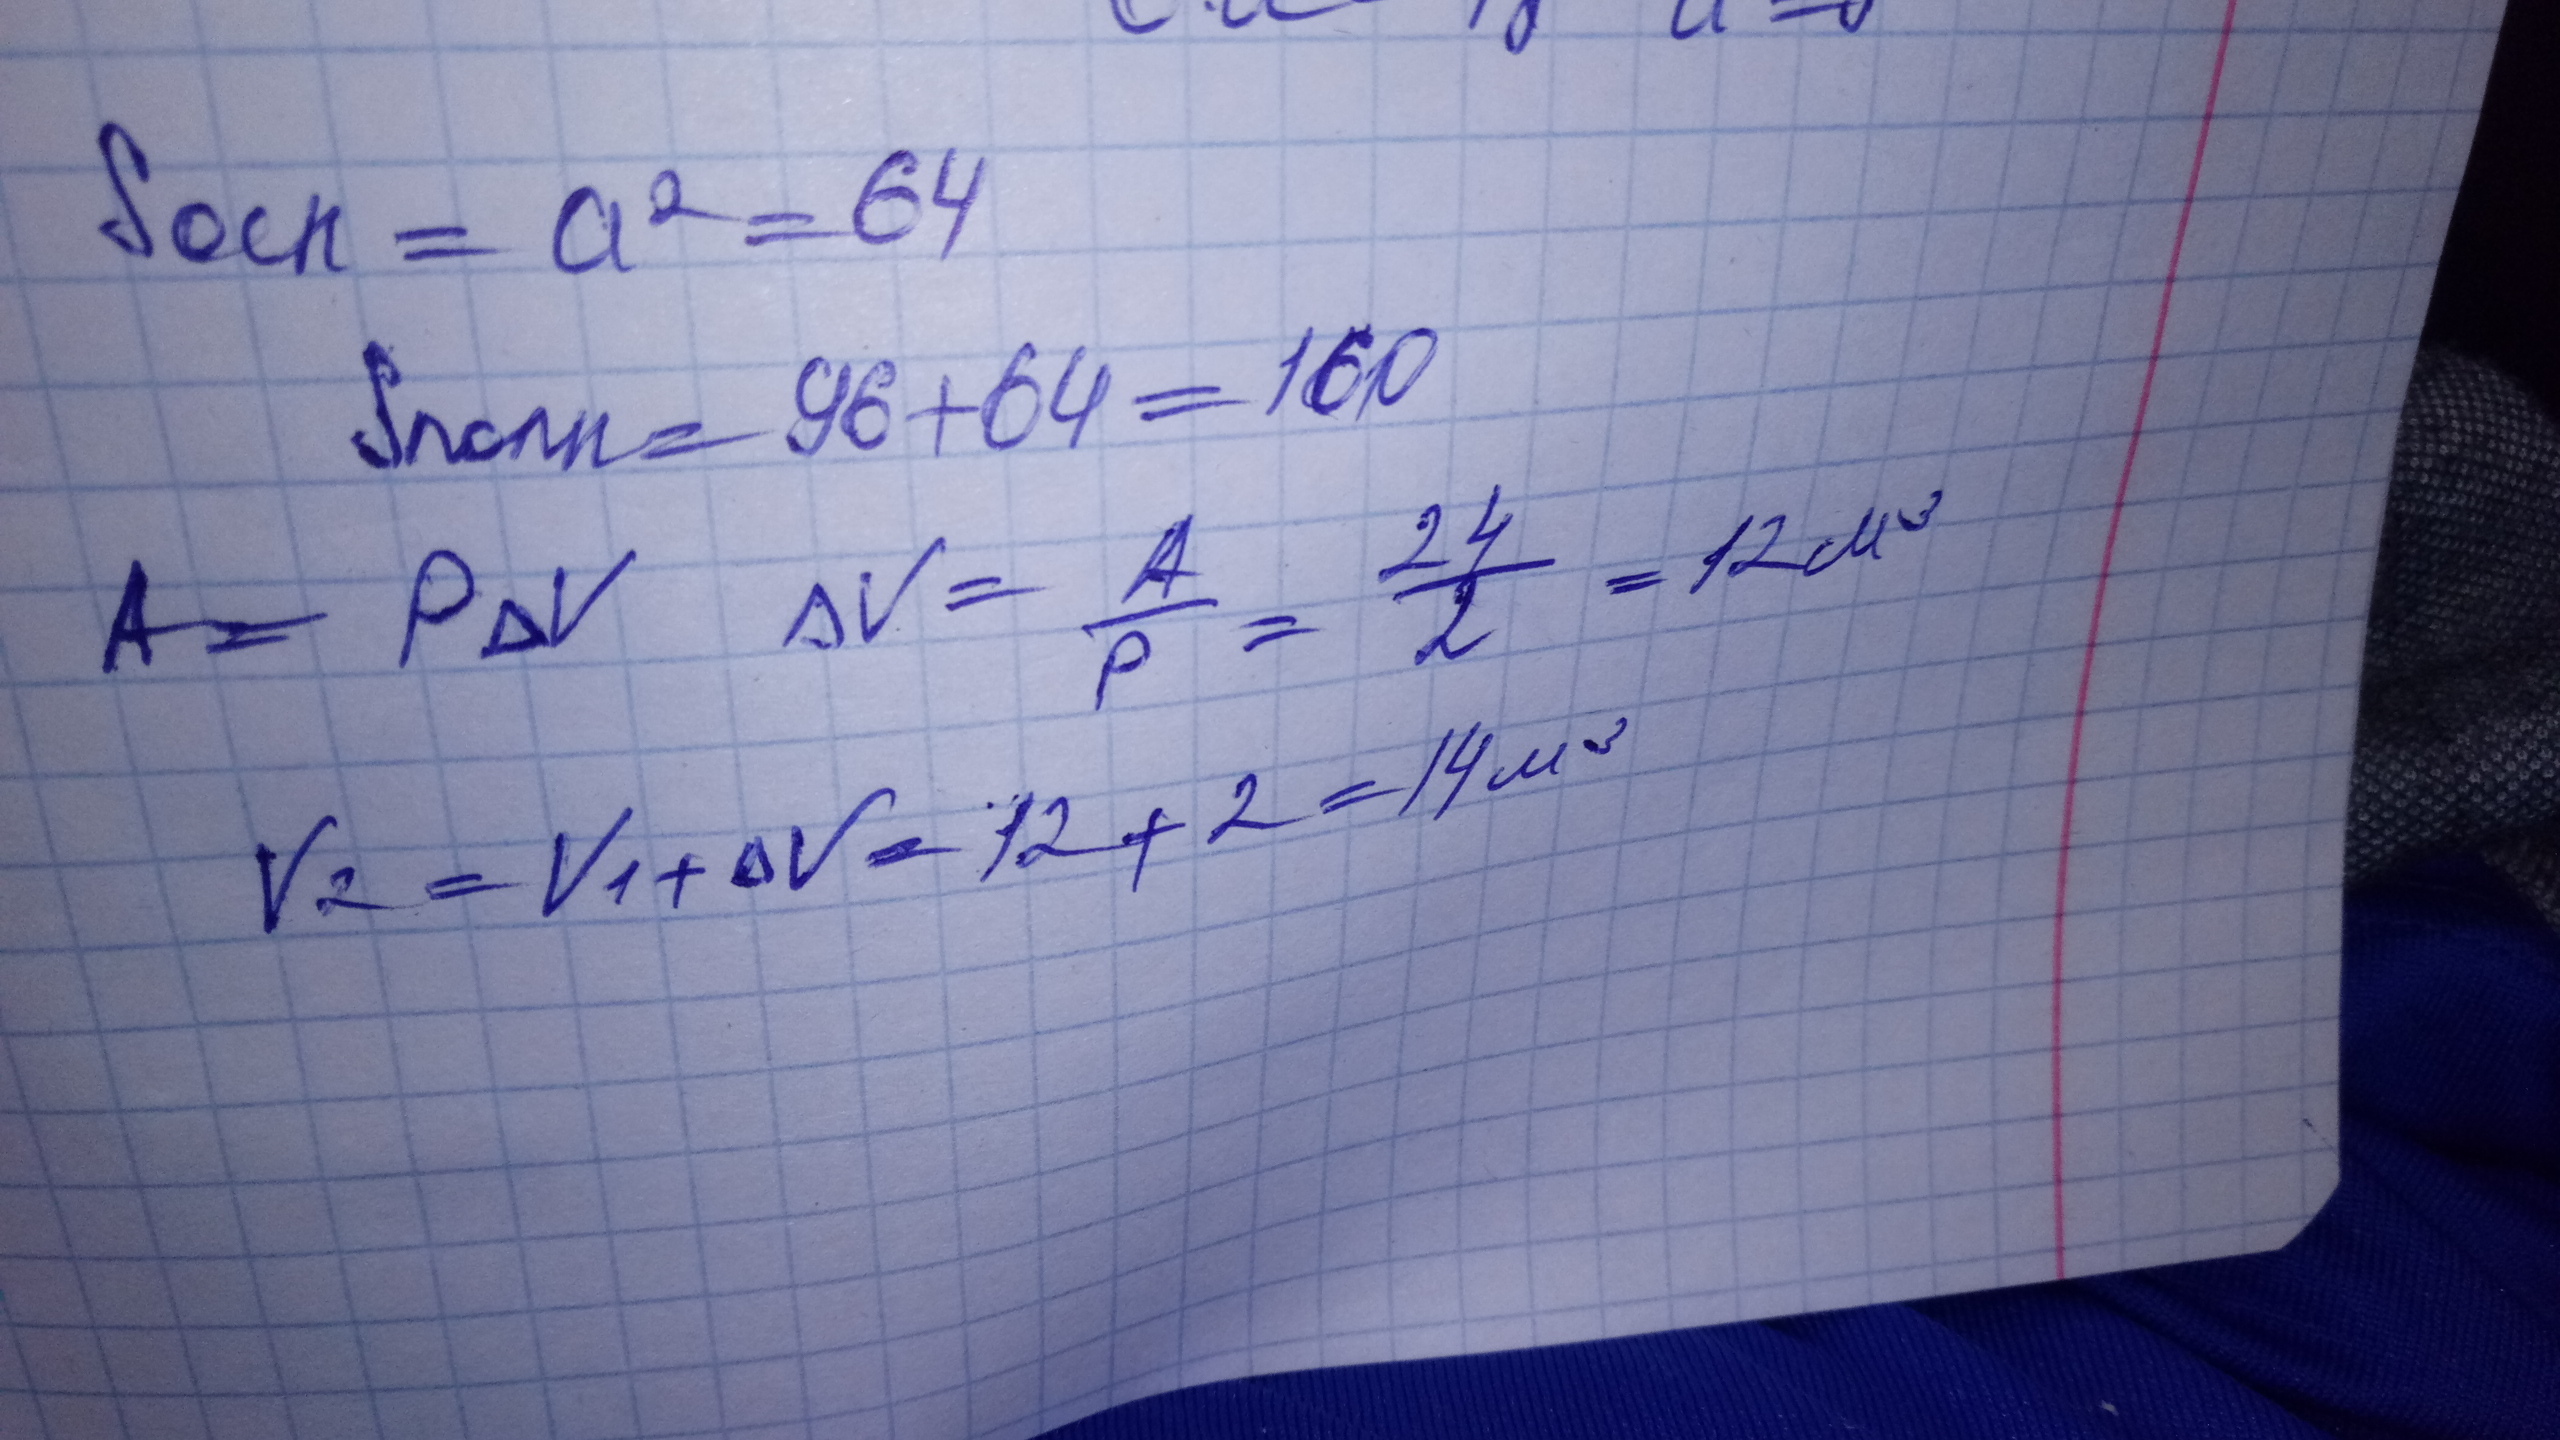 Sосн = a² = 64
Sполн = 96+64 = 160
A = PΔV ΔV = A/P = 24/2 = 12 м³
V₂ = V₁ + ΔV = 12 + 2 = 14 м³